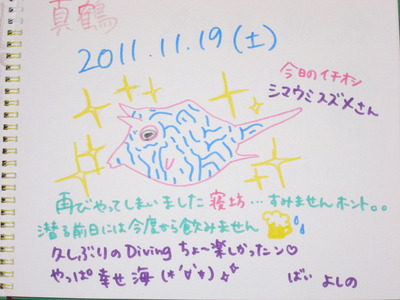 真鶴
2011.11.19(土)
今日のイチオシ
シマウミスズメさん
再びやってしまいました寝坊…すみませんホント。。
潜る前日には今度から飲みません
久しぶりのDivingちょ〜楽しかったン♡
やっぱ幸せ海(*'∀'*)
ばい よしの